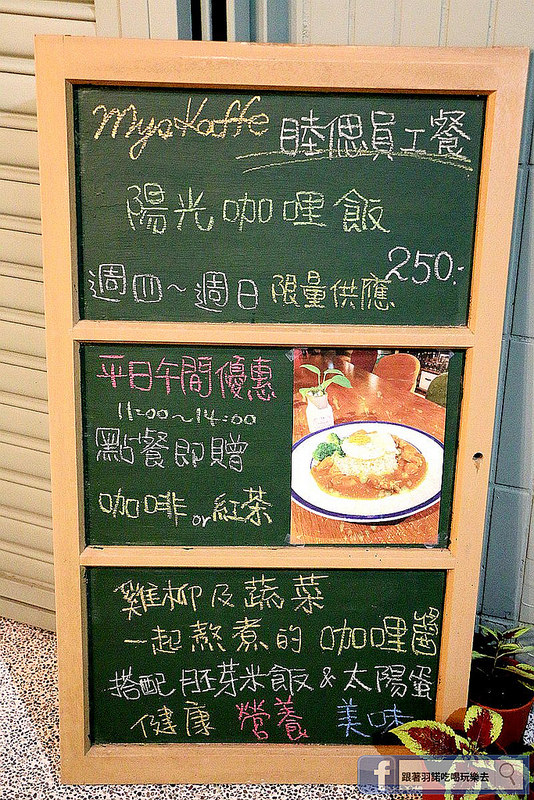 MyaKaffe 睦偲員工餐
陽光咖哩飯
250.-
週四~週日 限量供應
平日午間優惠
11:00~14:00
點餐即贈
咖啡or紅茶
雞柳及蔬菜
一起熬煮的咖哩醬
搭配胚芽米飯&太陽蛋
健康 營養 美味
f 跟著羽諾吃喝玩樂去